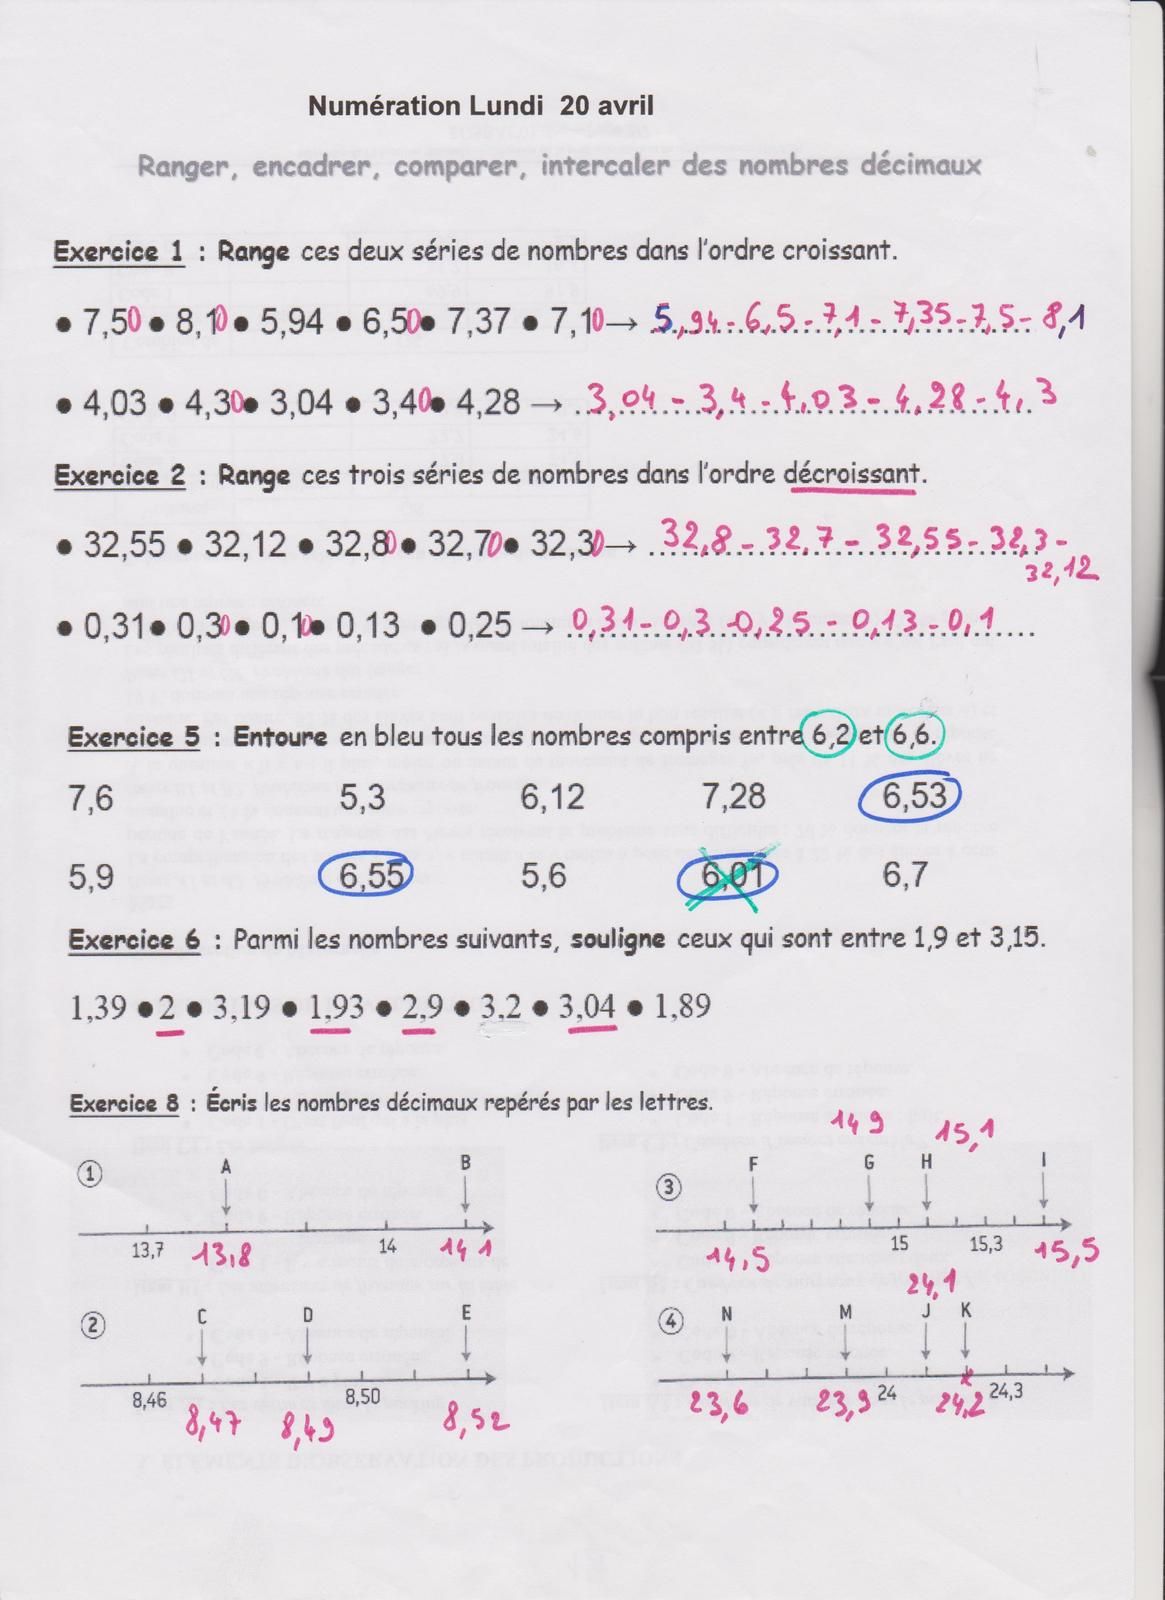 Numération Lundi 20 avril
Ranger, encadrer, comparer, intercaler des nombres décimaux
Exercice 1 : Range ces deux séries de nombres dans l'ordre croissant.
● 7,50 ● 8,10 ● 5,94 ● 6,50 ● 7,37 ● 7,10 → 5,94 - 6,5 - 7,1 - 7,35 - 7,5 - 8,1
● 4,03 ● 4,30 ● 3,04 ● 3,40 ● 4,28 → 3,04 - 3,4 - 4,03 - 4,28 - 4,3
Exercice 2 : Range ces trois séries de nombres dans l'ordre décroissant.
● 32,55 ● 32,12 ● 32,80 ● 32,70 ● 32,30 → 32,8 - 32,7 - 32,55 - 32,3 -
32,12
● 0,31 ● 0,30 ● 0,10 ● 0,13 ● 0,25 → 0,31 - 0,3 - 0,25 - 0,13 - 0,1
Exercice 5 : Entoure en bleu tous les nombres compris entre 6,2 et 6,6.
7,6 5,3 6,12 7,28 6,53
5,9 6,55 5,6 6,01 6,7
Exercice 6 : Parmi les nombres suivants, souligne ceux qui sont entre 1,9 et 3,15.
1,39 ● 2 ● 3,19 ● 1,93 ● 2,9 ● 3,2 ● 3,04 ● 1,89
Exercice 8 : Écris les nombres décimaux repérés par les lettres.
14 9 15,1
1 A B
13,7 13,8 14 14 1
3 F G H I
14,5 15 15,3 15,5
24,1
2 C D E
8,46 8,47 8,49 8,50 8,52
4 N M J K
23,6 23,9 24 24,2 24,3